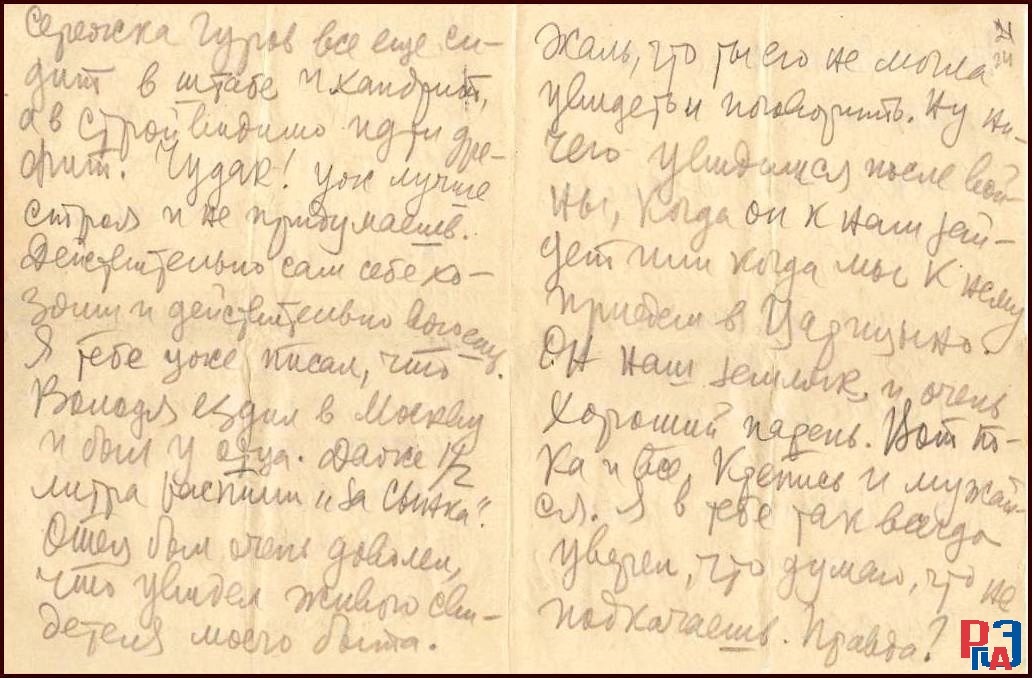 Сережка Гуров все еще си-
дит в штабе и хандрит,
а в строй видимо идти дре-
фит. Чудак! уж лучше
строя и не придумаешь.
Действительно сам себе хо-
зяин и действительно воюешь.
Я тебе уже писал, что
Володя ездил в Москву
и был у отца. Даже 1/2
литра распили „за сынка“.
Отец был очень доволен,
что увидел живого сви-
детеля моего быта.
Жаль, что ты его не могла
увидеть и поговорить. Ну ни-
чего увидимся после вой-
ны, когда он к нам зай-
дет или когда мы к нему
приедем в Царицыно.
Он наш земляк, и очень
хороший парень. Вот по-
ка и все. Крепись и мужай-
ся. Я в тебе так всегда
уверен, что думаю, что не
подкачаешь. Правда?
РГАЭ